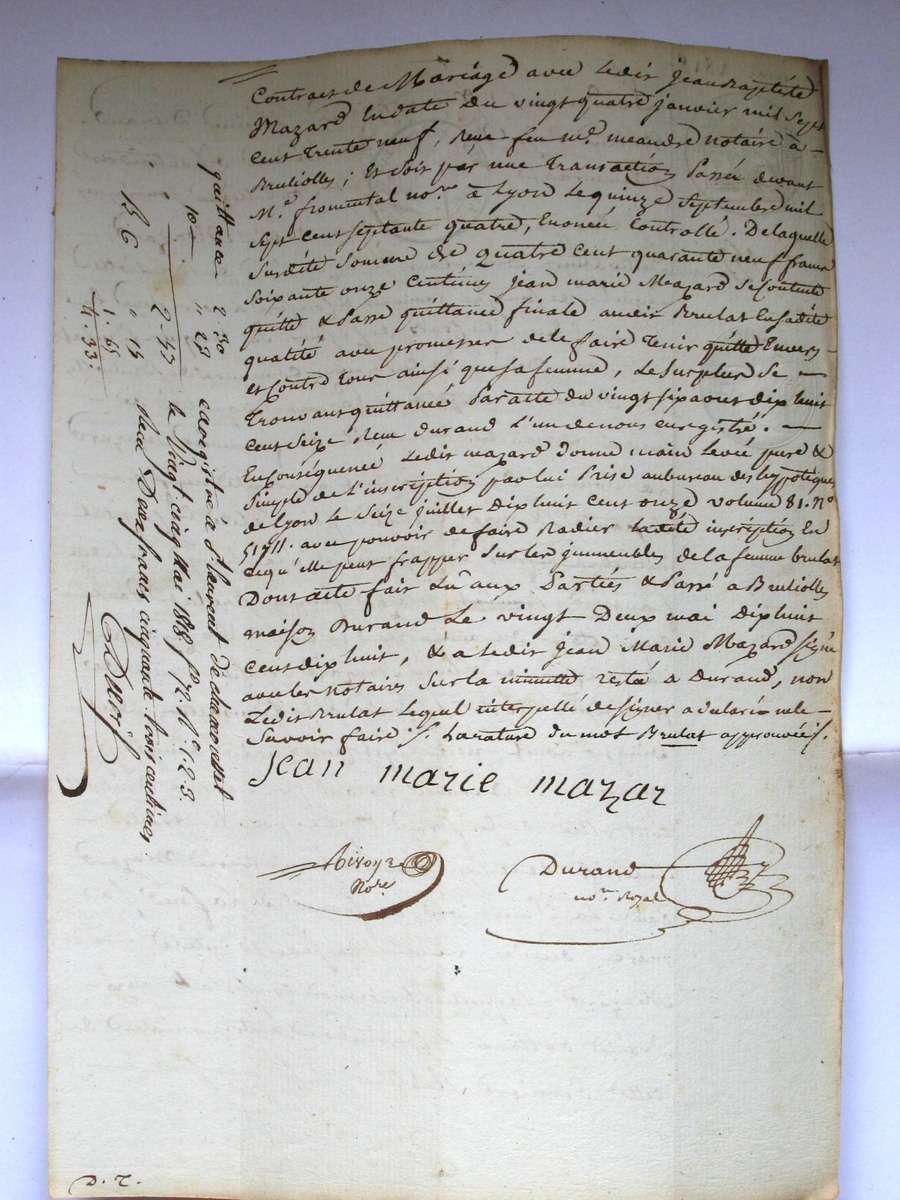 Contract de Mariage avec Ledit Jean Baptiste
Mazard En date du vingt quatre janvier mil sept
cent trente neuf, Reçu feu Me. meandre notaire à -
Brullioles; Et Soit par une Transaction Passée devant
Me. fromental nore. à Lyon Le quinze Septembre mil
Sept cent septante quatre, Enoncée Controllé. De laquelle
Susdité Somme de quatre cent quarante neuf francs
Soixante onze Centimes Jean marie Mazard se Contente
quitte & Passe quittance finale audit Brulat En sadite
qualité avec promesse de le faire Tenir quitte Envers
et Contre tous ainsi que sa femme, Le surplus Se -
Trouvant quittancé Par acte du vingt six aout dix huit
Cent Seize Reçu durand L'un de nous enregistré. -
En Conséquence Ledit mazard donne main Levée pure &
Simple de L'inscription par lui Prise au bureau des hypoteques
de Lyon Le Seize juillet dix huit cent onze volume 81. No
51711. avec pouvoir de faire Radier ladite inscription En
Ce qu'elle peut frapper Sur les jmmeubles de la femme brulat
Dont acte fait Lu aux Parties & Passé a Brullioles
maison Durand Le vingt Deux mai dix huit
Cent dix huit, & a Ledit Jean Marie Mazard signé
avec les notaires Sur la minutte resté a Durand, non
Ledit Brulat Lequel interpellé de signer a declaré ne le
Savoir faire ./. La rature du mot Brulat approuvée ./.
Jean marie mazar
Nore.
Durand
nore. Royal
quittance 2 30
10e " 23
2 - 53
B C " 15
1. 65
4. 33.
Enregistré à St Laurent de chamousset
le Vingt-cinq Mai 1818 fo 72. Ro C. 2. 3.
Reçu Deux francs cinquante-trois centimes
D. T.